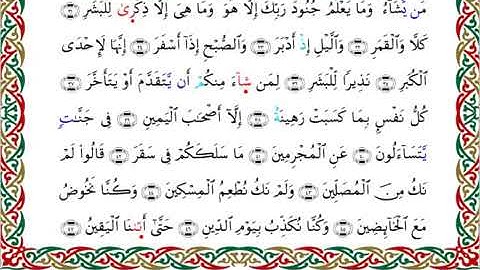 مَن يَشَآءُ ۚ وَمَا يَعْلَمُ جُنُودَ رَبِّكَ إِلَّا هُوَ ۚ وَمَا هِىَ إِلَّا ذِكْرَىٰ لِلْبَشَرِ ٣١
كَلَّا وَٱلْقَمَرِ ٣٢ وَٱلَّيْلِ إِذْ أَدْبَرَ ٣٣ وَٱلصُّبْحِ إِذَآ أَسْفَرَ ٣٤ إِنَّهَا لَإِحْدَى
ٱلْكُبَرِ ٣٥ نَذِيرًا لِّلْبَشَرِ ٣٦ لِمَن شَآءَ مِنكُمْ أَن يَتَقَدَّمَ أَوْ يَتَأَخَّرَ ٣٧
كُلُّ نَفْسٍۭ بِمَا كَسَبَتْ رَهِينَةٌ ٣٨ إِلَّآ أَصْحَٰبَ ٱلْيَمِينِ ٣٩ فِى جَنَّٰتٍ
يَتَسَآءَلُونَ ٤٠ عَنِ ٱلْمُجْرِمِينَ ٤١ مَا سَلَكَكُمْ فِى سَقَرَ ٤٢ قَالُوا۟ لَمْ
نَكُ مِنَ ٱلْمُصَلِّينَ ٤٣ وَلَمْ نَكُ نُطْعِمُ ٱلْمِسْكِينَ ٤٤ وَكُنَّا نَخُوضُ
مَعَ ٱلْخَآئِضِينَ ٤٥ وَكُنَّا نُكَذِّبُ بِيَوْمِ ٱلدِّينِ ٤٦ حَتَّىٰٓ أَتَىٰنَا ٱلْيَقِينُ ٤٧